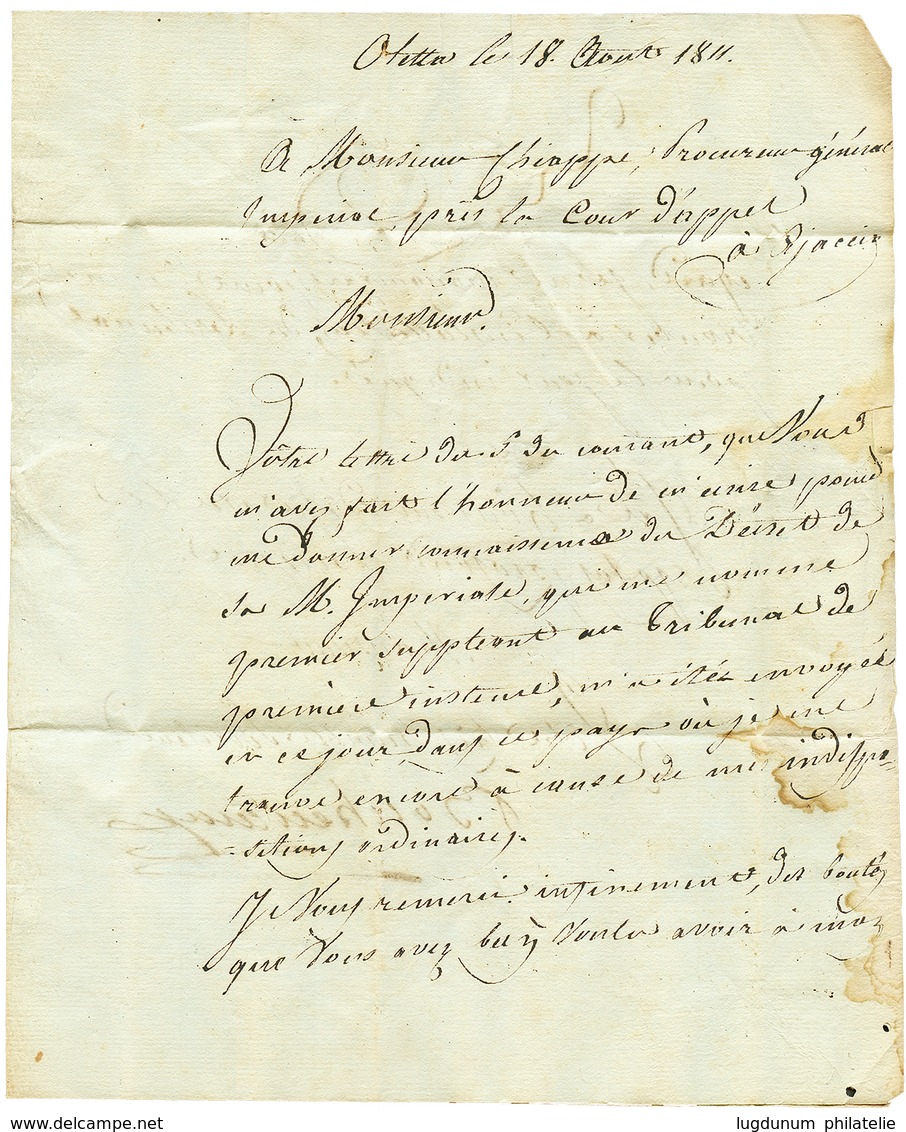 Oletta le 18. Aout 1811.
A Monsieur Chiappe, Procureur général
Imperial, près la Cour d'appel
à Ajaccio
Monsieur.
Vôtre lettre du 5 du courant, que Vous
m'avez fait l'honneur de m'ecrire, pour
me donner connaissence du Décret de
Sa M. Imperiale, qui me nomme
premier suppleant au Tribunal de
première instence, m'a été envoyée
en ce jour, dans ce pays où je me
trouve encore à cause de mes indispo=
=sitions ordinaires.
Je Vous remercie infinement, des boutés
que Vous avez bien Voulu avoir à moi
delcampe.net
lugdunum philatelie